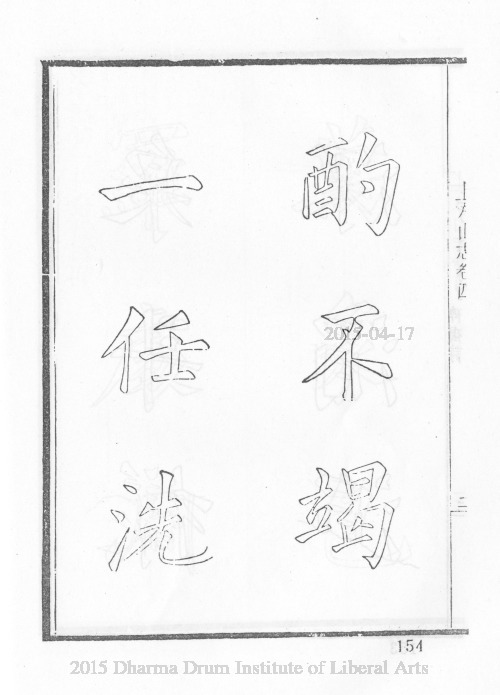 酌不竭
一任洗
山志卷四
二
154
2015-04-17
2015 Dharma Drum Institute of Liberal Arts